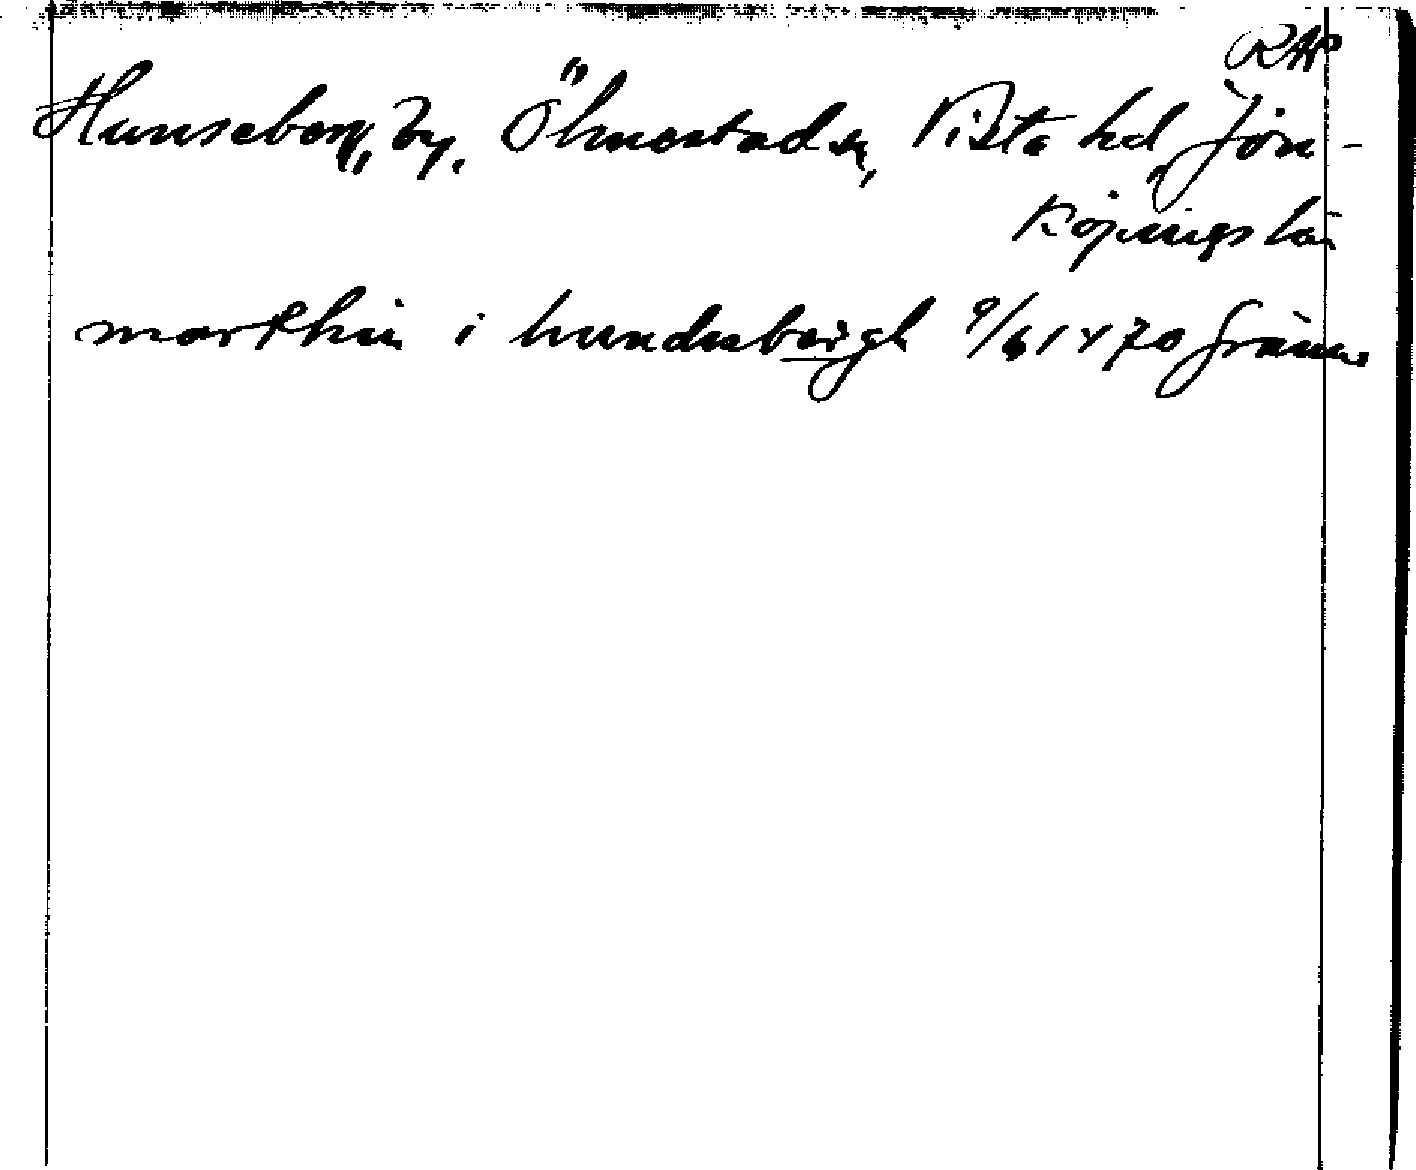 RAP
Hunseberg, by, Ölmestad sn, Vista hd, Jön-
köpings län
markkin i hundsbergh 9/6 1470 Gränna